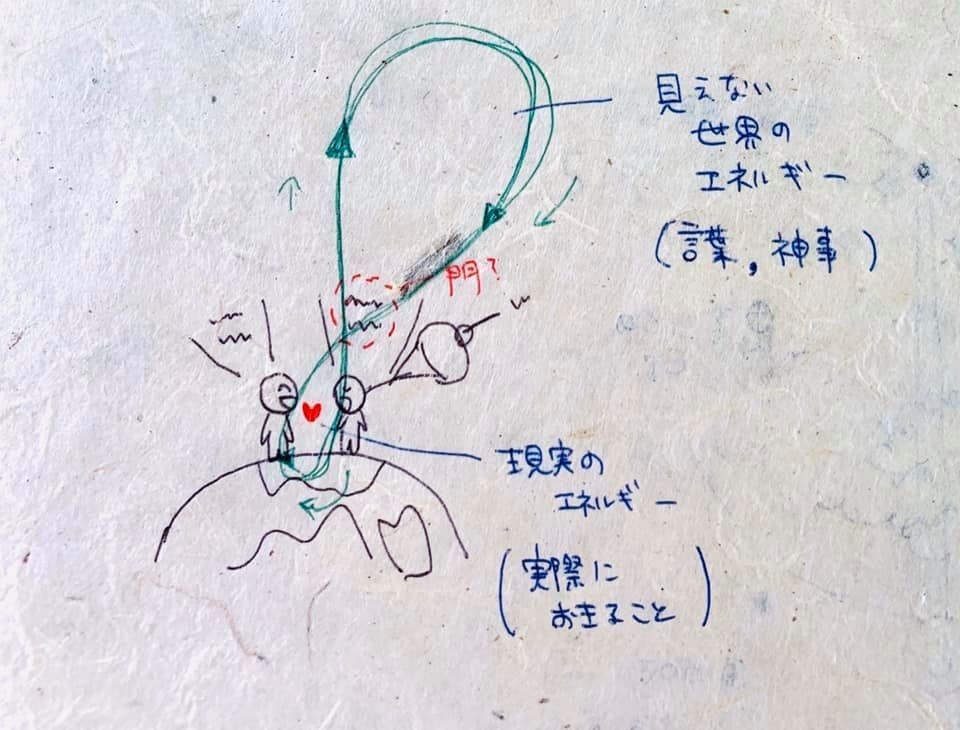 見えない
世界の
エネルギー
(言葉,神事)
門?
現実の
エネルギー
(実際に
おきること)